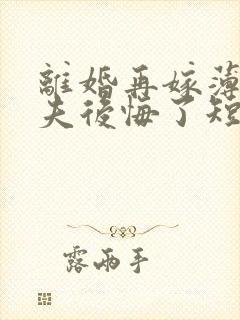 離婚再嫁薄
夫後悔了短
露兩手